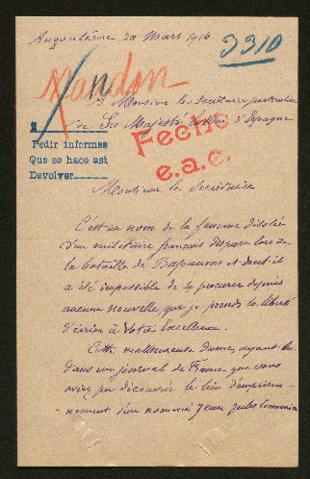 Angoulême 20 Mars 1916
3310
Mandon
A Monsieur le Secrétaire particulier
de Sa Majesté le Roi d'Espagne
Fecho
e.a.c.
Pedir informes
Que se hace así
Devolver
Monsieur le Secrétaire
C'est au nom de la femme désolée
d'un militaire français disparu lors de
la bataille de Bapaume et dont il
a été impossible de se procurer depuis
aucune nouvelle, que je prends la liberté
d'écrire à Votre Excellence.
Cette malheureuse dame, ayant lu
dans un journal de France que vous
aviez pu découvrir le lieu d'emprison-
-nement d'un nommé Jean Jules